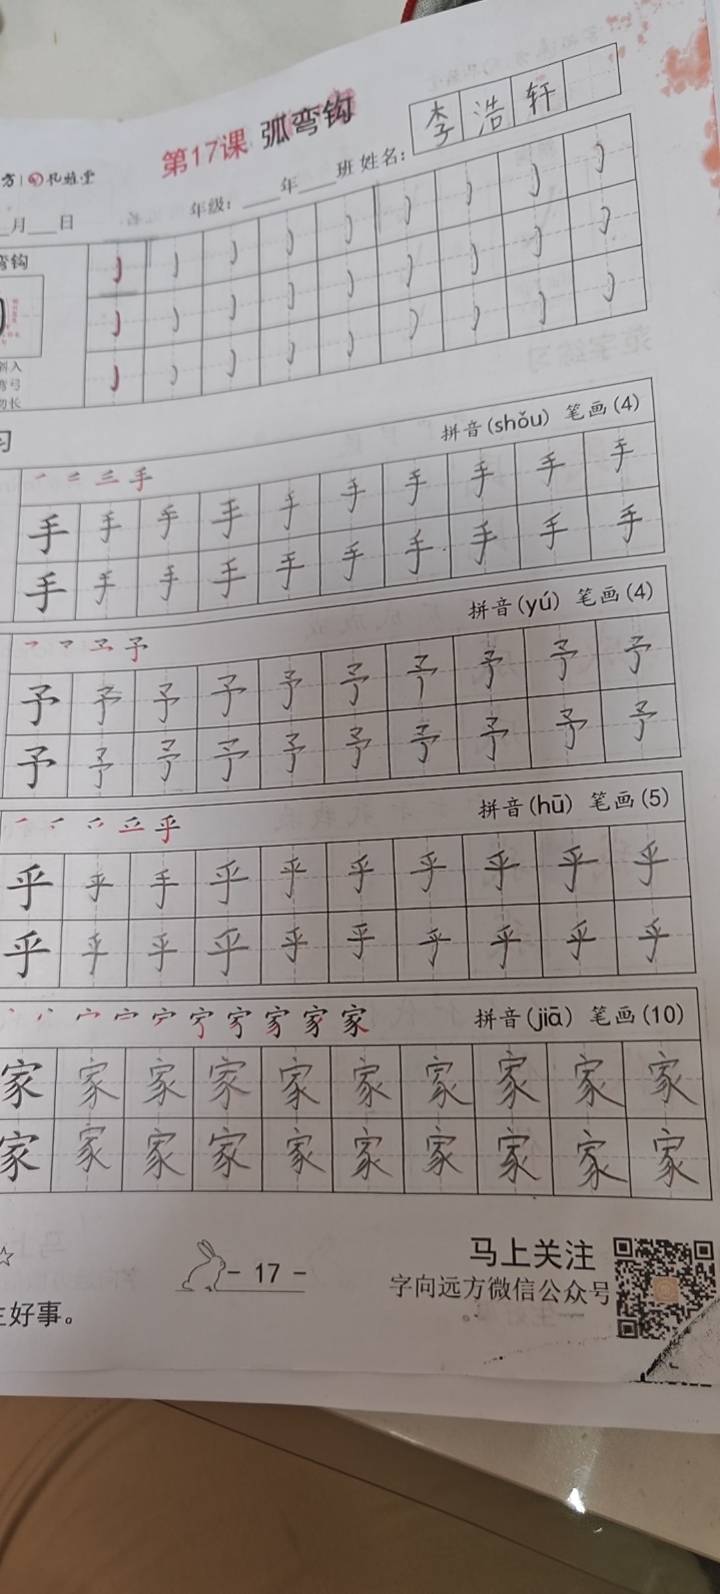 第17课 弧弯钩
李浩轩
月 日 年级: 年 班 姓名:
弯钩
拼音(shǒu) 笔画(4)
手
手 手 手 手 手 手 手 手 手 手
手 手 手 手 手 手 手 手 手 手
拼音(yú) 笔画(4)
予
予 予 予 予 予 予 予 予 予 予
予 予 予 予 予 予 予 予 予 予
拼音(hū) 笔画(5)
乎
乎 乎 手 乎 乎 乎 乎 乎 乎 乎
乎 乎 乎 乎 乎 乎 乎 乎 乎 乎
家 拼音(jiā) 笔画(10)
家 家 家 家 家 家 家 家 家 家
家 家 家 家 家 家 家 家 家 家
- 17 -
马上关注
字向远方微信公众号
好事。